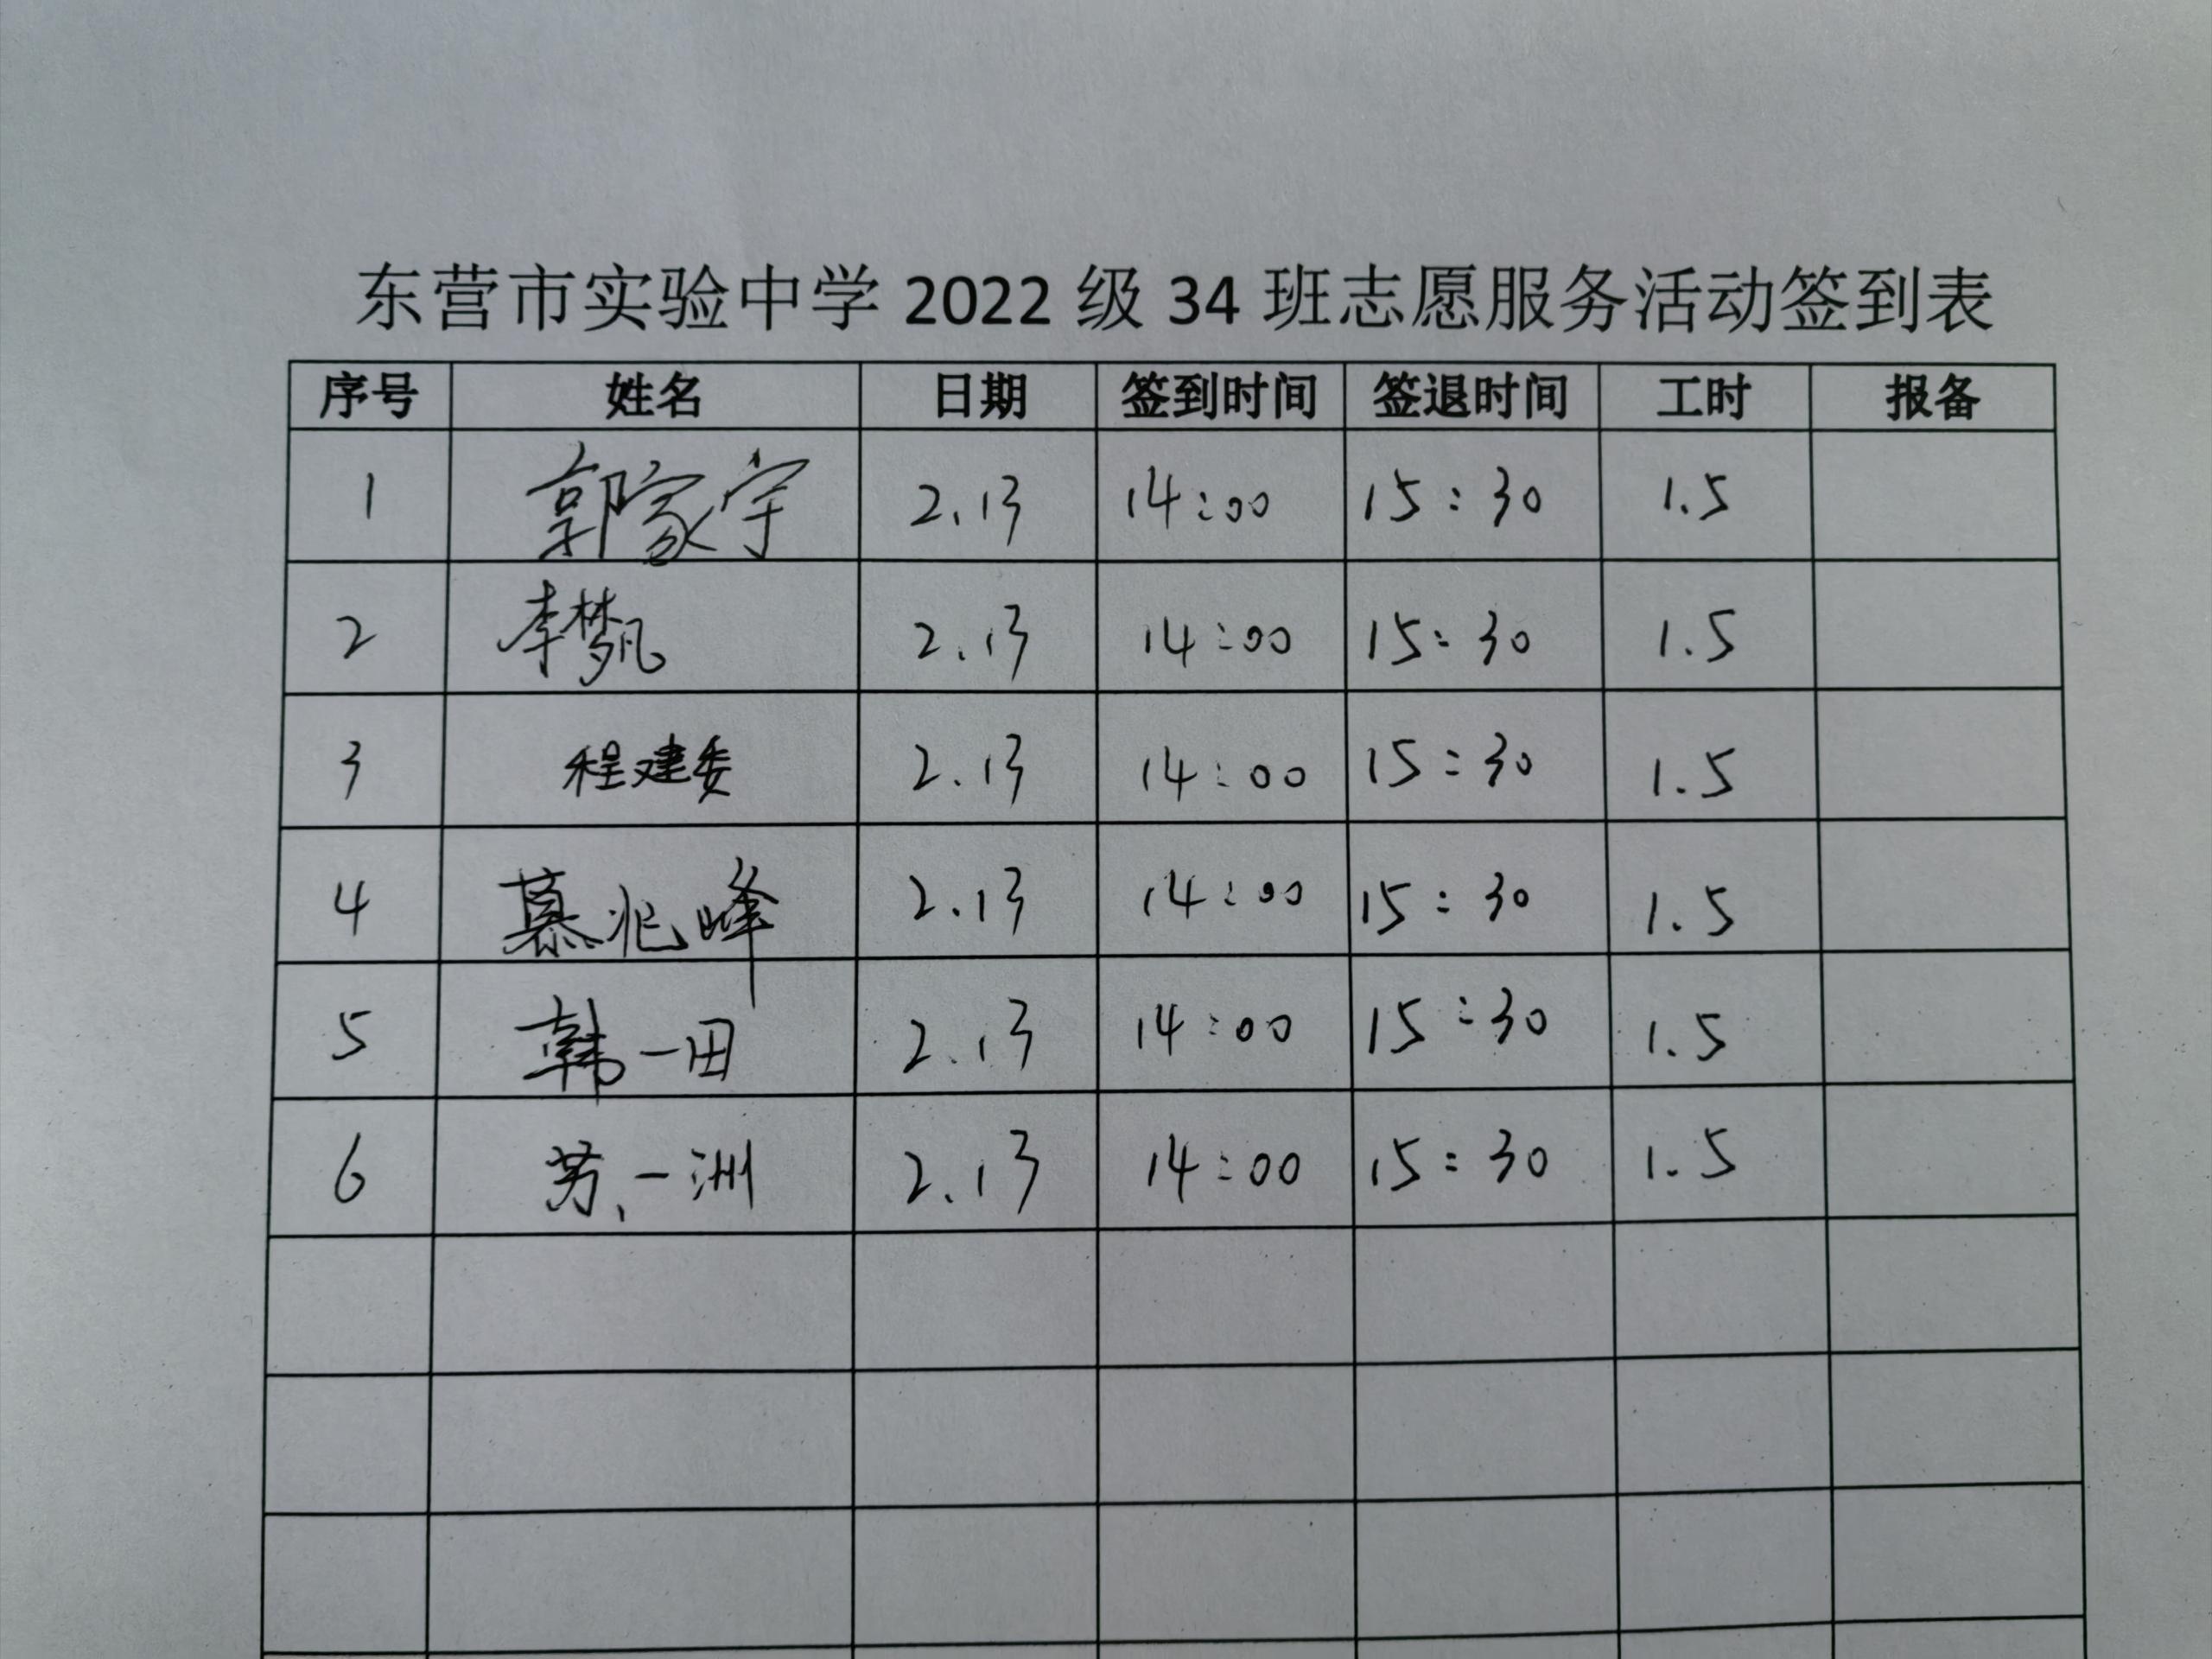 东营市实验中学 2022 级 34 班志愿服务活动签到表
序号 姓名 日期 签到时间 签退时间 工时 报备
1 郭家宇 2.13 14:00 15:30 1.5
2 李梦凡 2.13 14:00 15:30 1.5
3 程建委 2.13 14:00 15:30 1.5
4 慕兆峰 2.13 14:00 15:30 1.5
5 韩一田 2.13 14:00 15:30 1.5
6 苏一洲 2.13 14:00 15:30 1.5